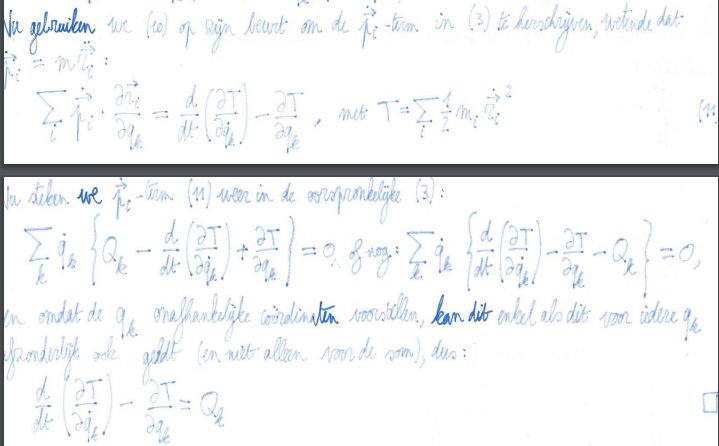 Nu gebruiken we (10) op zijn beurt om de \dot{\vec{p}}_i-term in (3) te herschrijven, wetende dat
\vec{p}_i = m\dot{\vec{r}}_i :
\sum_i \dot{\vec{p}}_i \cdot \frac{\partial \vec{r}_i}{\partial q_k} = \frac{d}{dt}\left(\frac{\partial T}{\partial \dot{q}_k}\right) - \frac{\partial T}{\partial q_k}, met T = \sum_i \frac{1}{2} m_i \dot{\vec{r}}_i^2 (11)
Nu steken we \dot{\vec{p}}_i-term (11) weer in de oorspronkelijke (3) :
\sum_k \dot{q}_k \left\{ Q_k - \frac{d}{dt}\left(\frac{\partial T}{\partial \dot{q}_k}\right) + \frac{\partial T}{\partial q_k} \right\} = 0, of nog: \sum_k \dot{q}_k \left\{ \frac{d}{dt}\left(\frac{\partial T}{\partial \dot{q}_k}\right) - \frac{\partial T}{\partial q_k} - Q_k \right\} = 0,
en omdat de q_k onafhankelijke coördinaten voorstellen, kan dit enkel als dit voor iedere q_k
afzonderlijk ook geldt (en niet alleen voor de som), dus:
\frac{d}{dt}\left(\frac{\partial T}{\partial \dot{q}_k}\right) - \frac{\partial T}{\partial q_k} = Q_k □